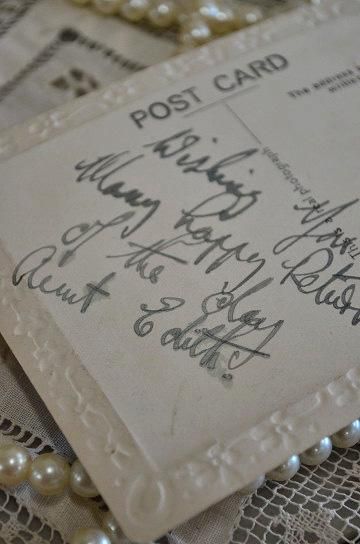 POST CARD
The address
This is a real photograph
Wishing You
Many happy Return
of the day
Aunt Edith.